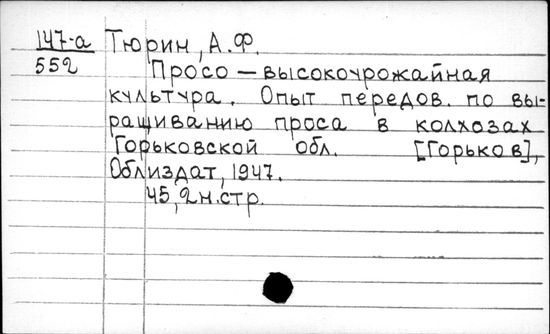 147-а Тюрин, А.Ф.
552 Просо — высокоурожайная
культура. Опыт передов. по вы-
ращиванию проса в колхозах
Горьковской обл. [Горьков],
Облиздат, 1947.
45, 2 н. стр.